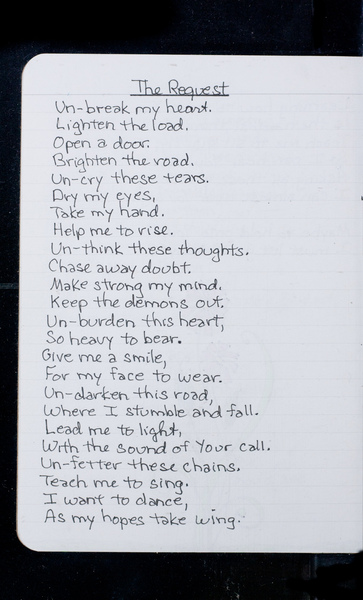 The Request
Un-break my heart.
Lighten the load.
Open a door.
Brighten the road.
Un-cry these tears.
Dry my eyes,
Take my hand.
Help me to rise.
Un-think these thoughts.
Chase away doubt.
Make strong my mind.
Keep the demons out.
Un-burden this heart,
So heavy to bear.
Give me a smile,
For my face to wear.
Un-darken this road,
Where I stumble and fall.
Lead me to light,
With the sound of Your call.
Un-fetter these chains.
Teach me to sing.
I want to dance,
As my hopes take wing.